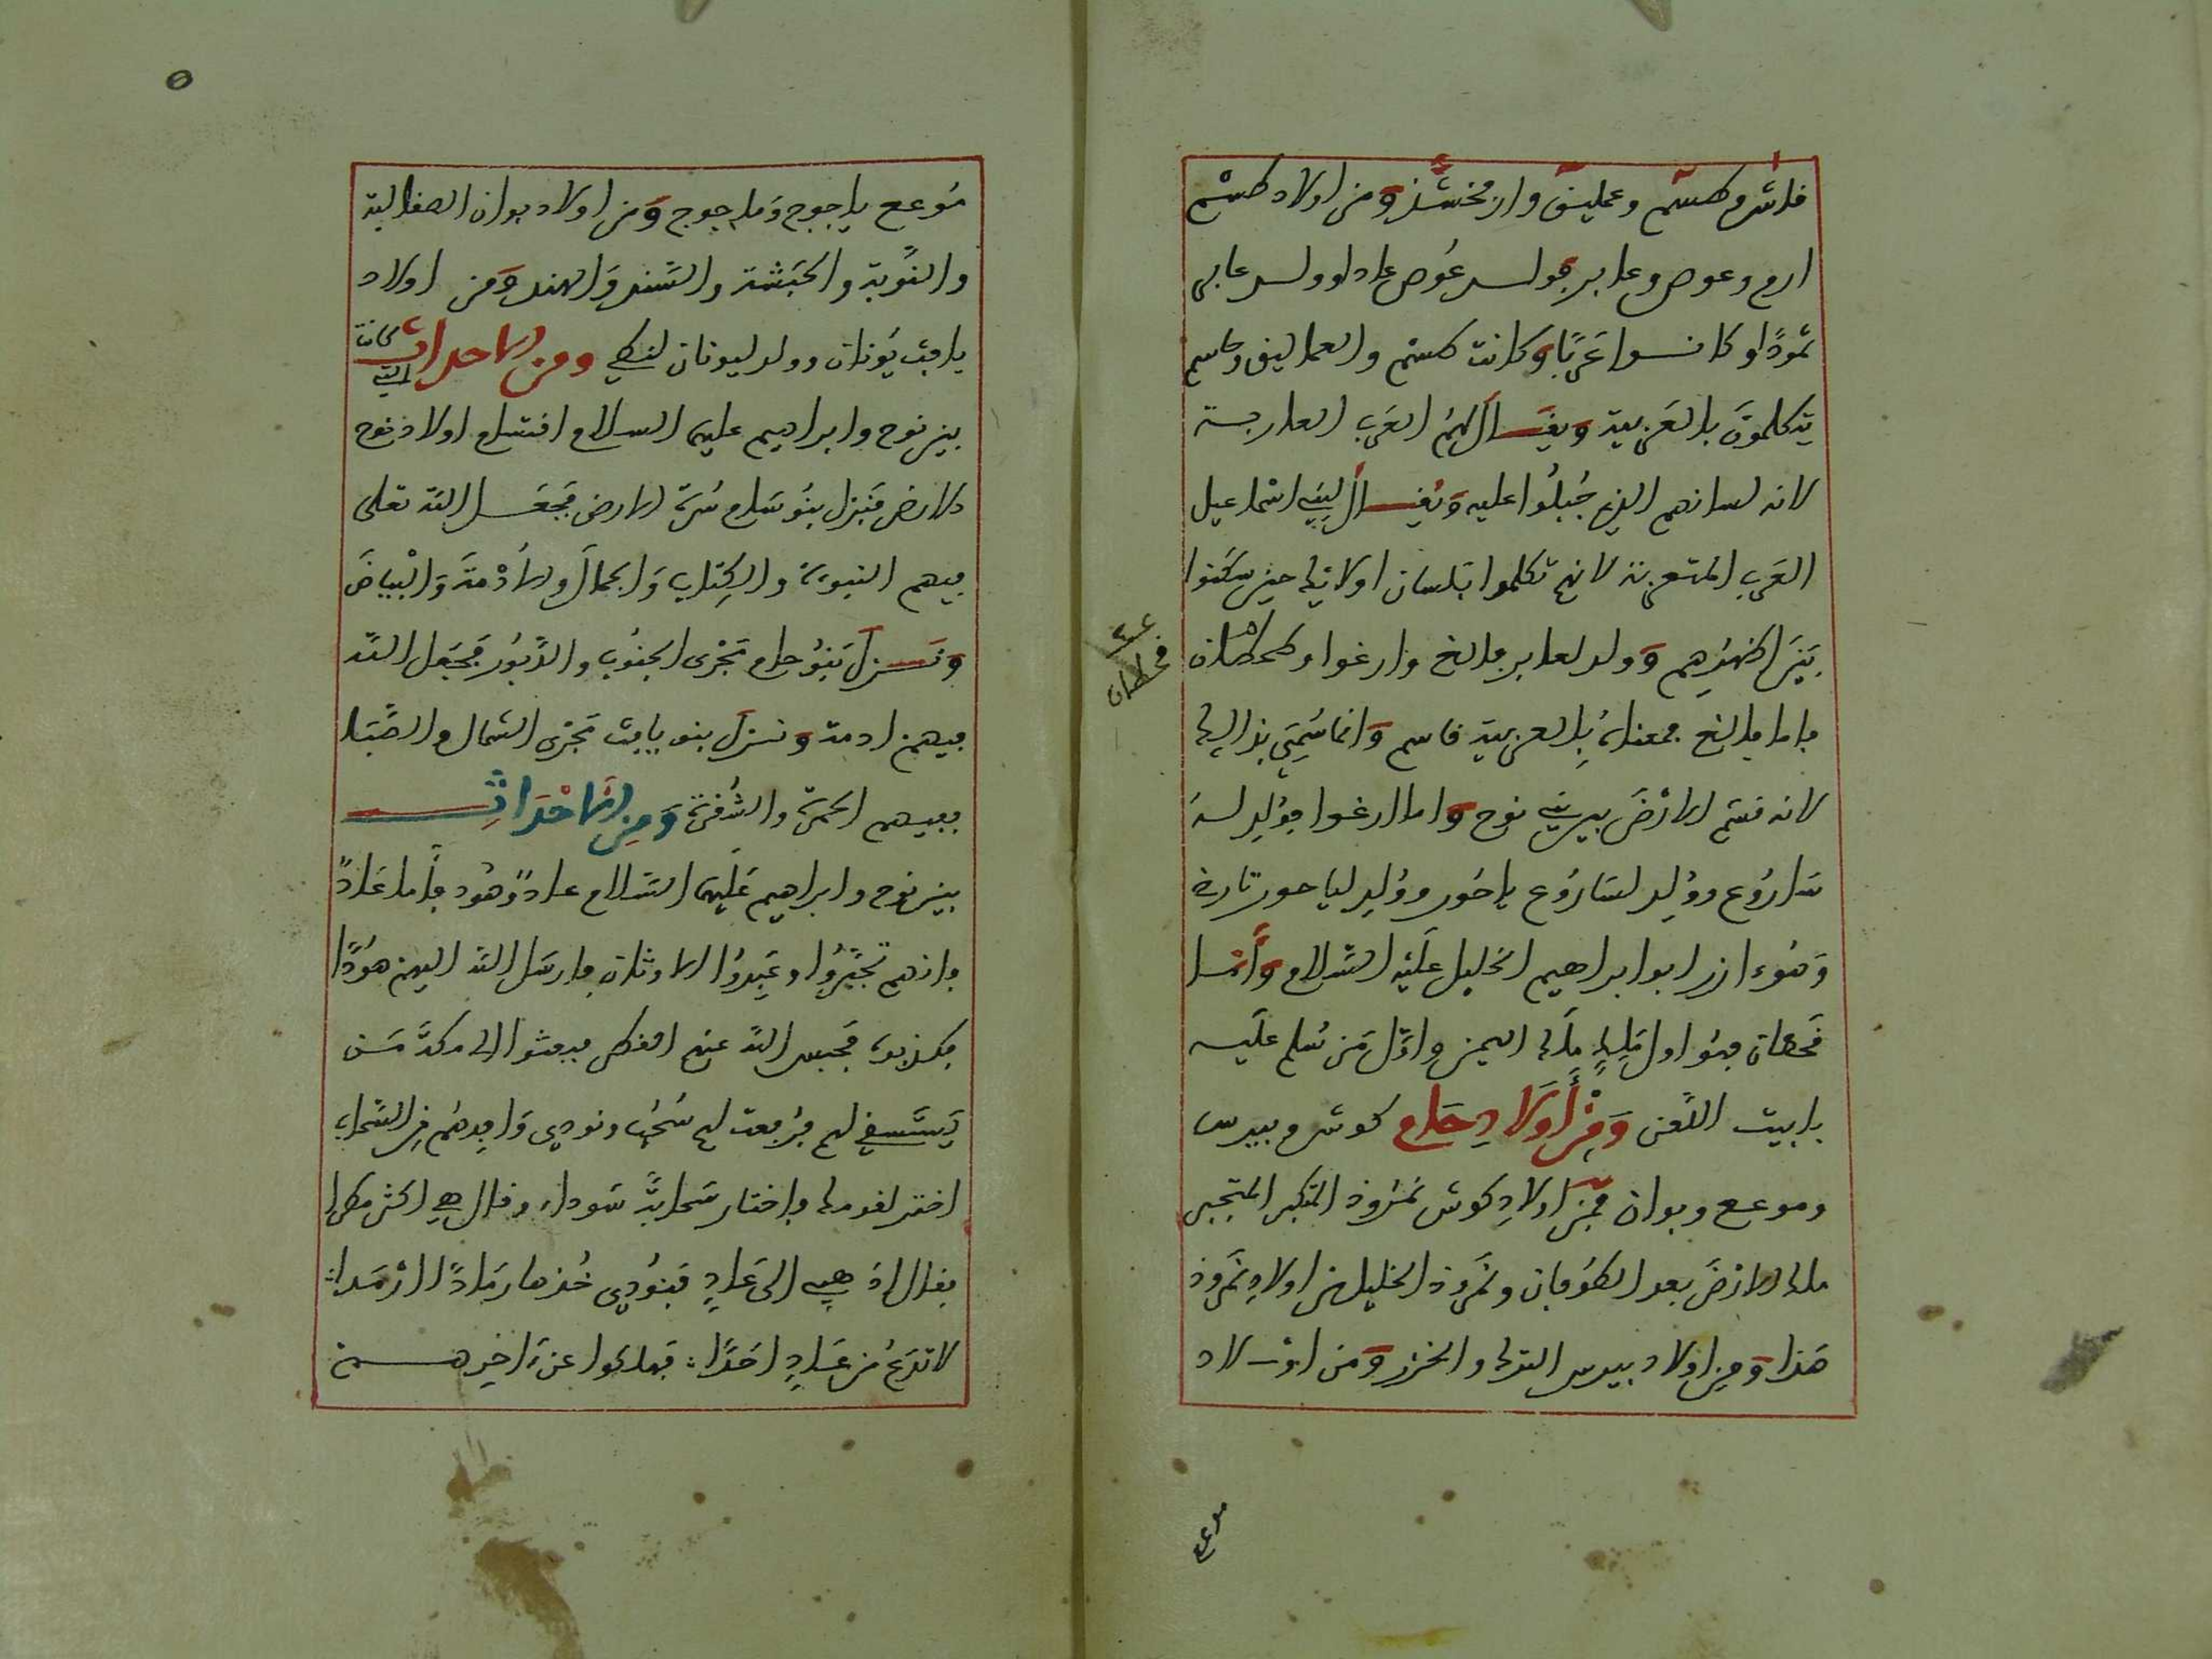 فاشر وكسم وعمليق وارفخشذ ومن اولاد كسم
ارم وعوص وعابر فولد عوص عادا وولد عابر
ثمودا وكانوا عربا وكانت كسم والعماليق وجاسم
يتكلمون بالعربية ويقال لهم العرب العاربة
لانه لسانهم الذي جبلوا عليه ويقال لبني اسماعيل
العرب المتعربة لانهم تكلموا بلسان اولائك حين سكنوا
بين اظهرهم وولد لعابر فالغ وارغوا وقحطان
عـ قحطان
فاما فالغ فمعناه بالعربية قاسم وانما سمي بذالك
لانه قسم الارض بين بني نوح واما ارغوا فولد له
ساروع وولد لساروع ياحور وولد لياحور تارة
وهو ءازر ابو ابراهيم الخليل عليه السلام واما
قحطان فهو اول ملك ملك اليمن واول من سلم عليه
بابيت اللعن ومن أولاد حام كوش وبيرس
وموعع وبوان فمن اولاد كوش نمروذ المتكبر المتجبر
ملك الارض بعد الطوفان ونمروذ الخليل من اولاد نمروذ
هذا ومن اولاد بيرس الترك والخزر ومن اولاد
موعع
موعع ياجوج وماجوج ومن اولاد بوان الصقالبة
والنوبة والحبشة والسند والهند ومن اولاد
يافث يونان وولد ليونان لنطي ومن الاحداث التي كانت
بين نوح وابراهيم عليهما السلام اقتسام اولاد نوح
الارض فنزل بنو سام سرة الارض فجعل الله تعلى
فيهم النبوءة والكتاب والجمال والأدمة والبياض
ونزل بنو حام مجرى الجنوب والدبور فجعل الله
فيهم ادمة ونزل بنو يافث مجرى الشمال والصبا
ففيهم الحمرة والشقرة ومن الاحداث
بين نوح وابراهيم عليهما السلام عاد وهود فأما عاد
فانهم تجبروا وعبدوا الاوثان فارسل الله اليهم هودا
فكذبوه فحبس الله عنهم القطر فبعثوا الى مكة من
يستسقي لهم فرفعت لهم سحب ونودي وافدهم من السحاب
اختر لقومك فاختار سحابة سوداء وقال هي اكثر مطرا
فقال اذهبي الى عاد فنودي خذها رمادا ارمدا
لا تدع من عاد احدا فهلكوا عن ءاخرهم